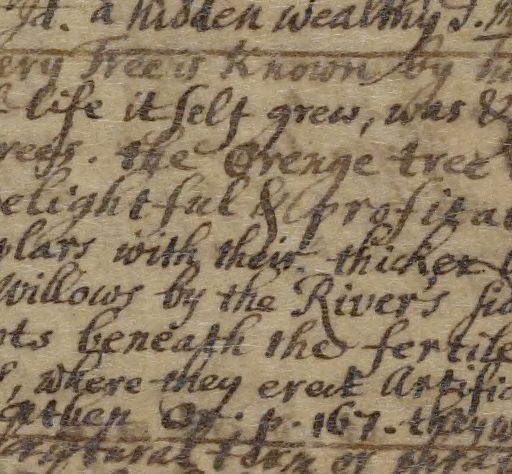 a hidden wealthy
ery Tree is Known by
life it self grew, was &
rees. the Orenge tree
elightful & profita
plars with their thicker
Willows by the Rivers sid
nts beneath the fertile
, where they erect Artific
p. 167. they
natural form or